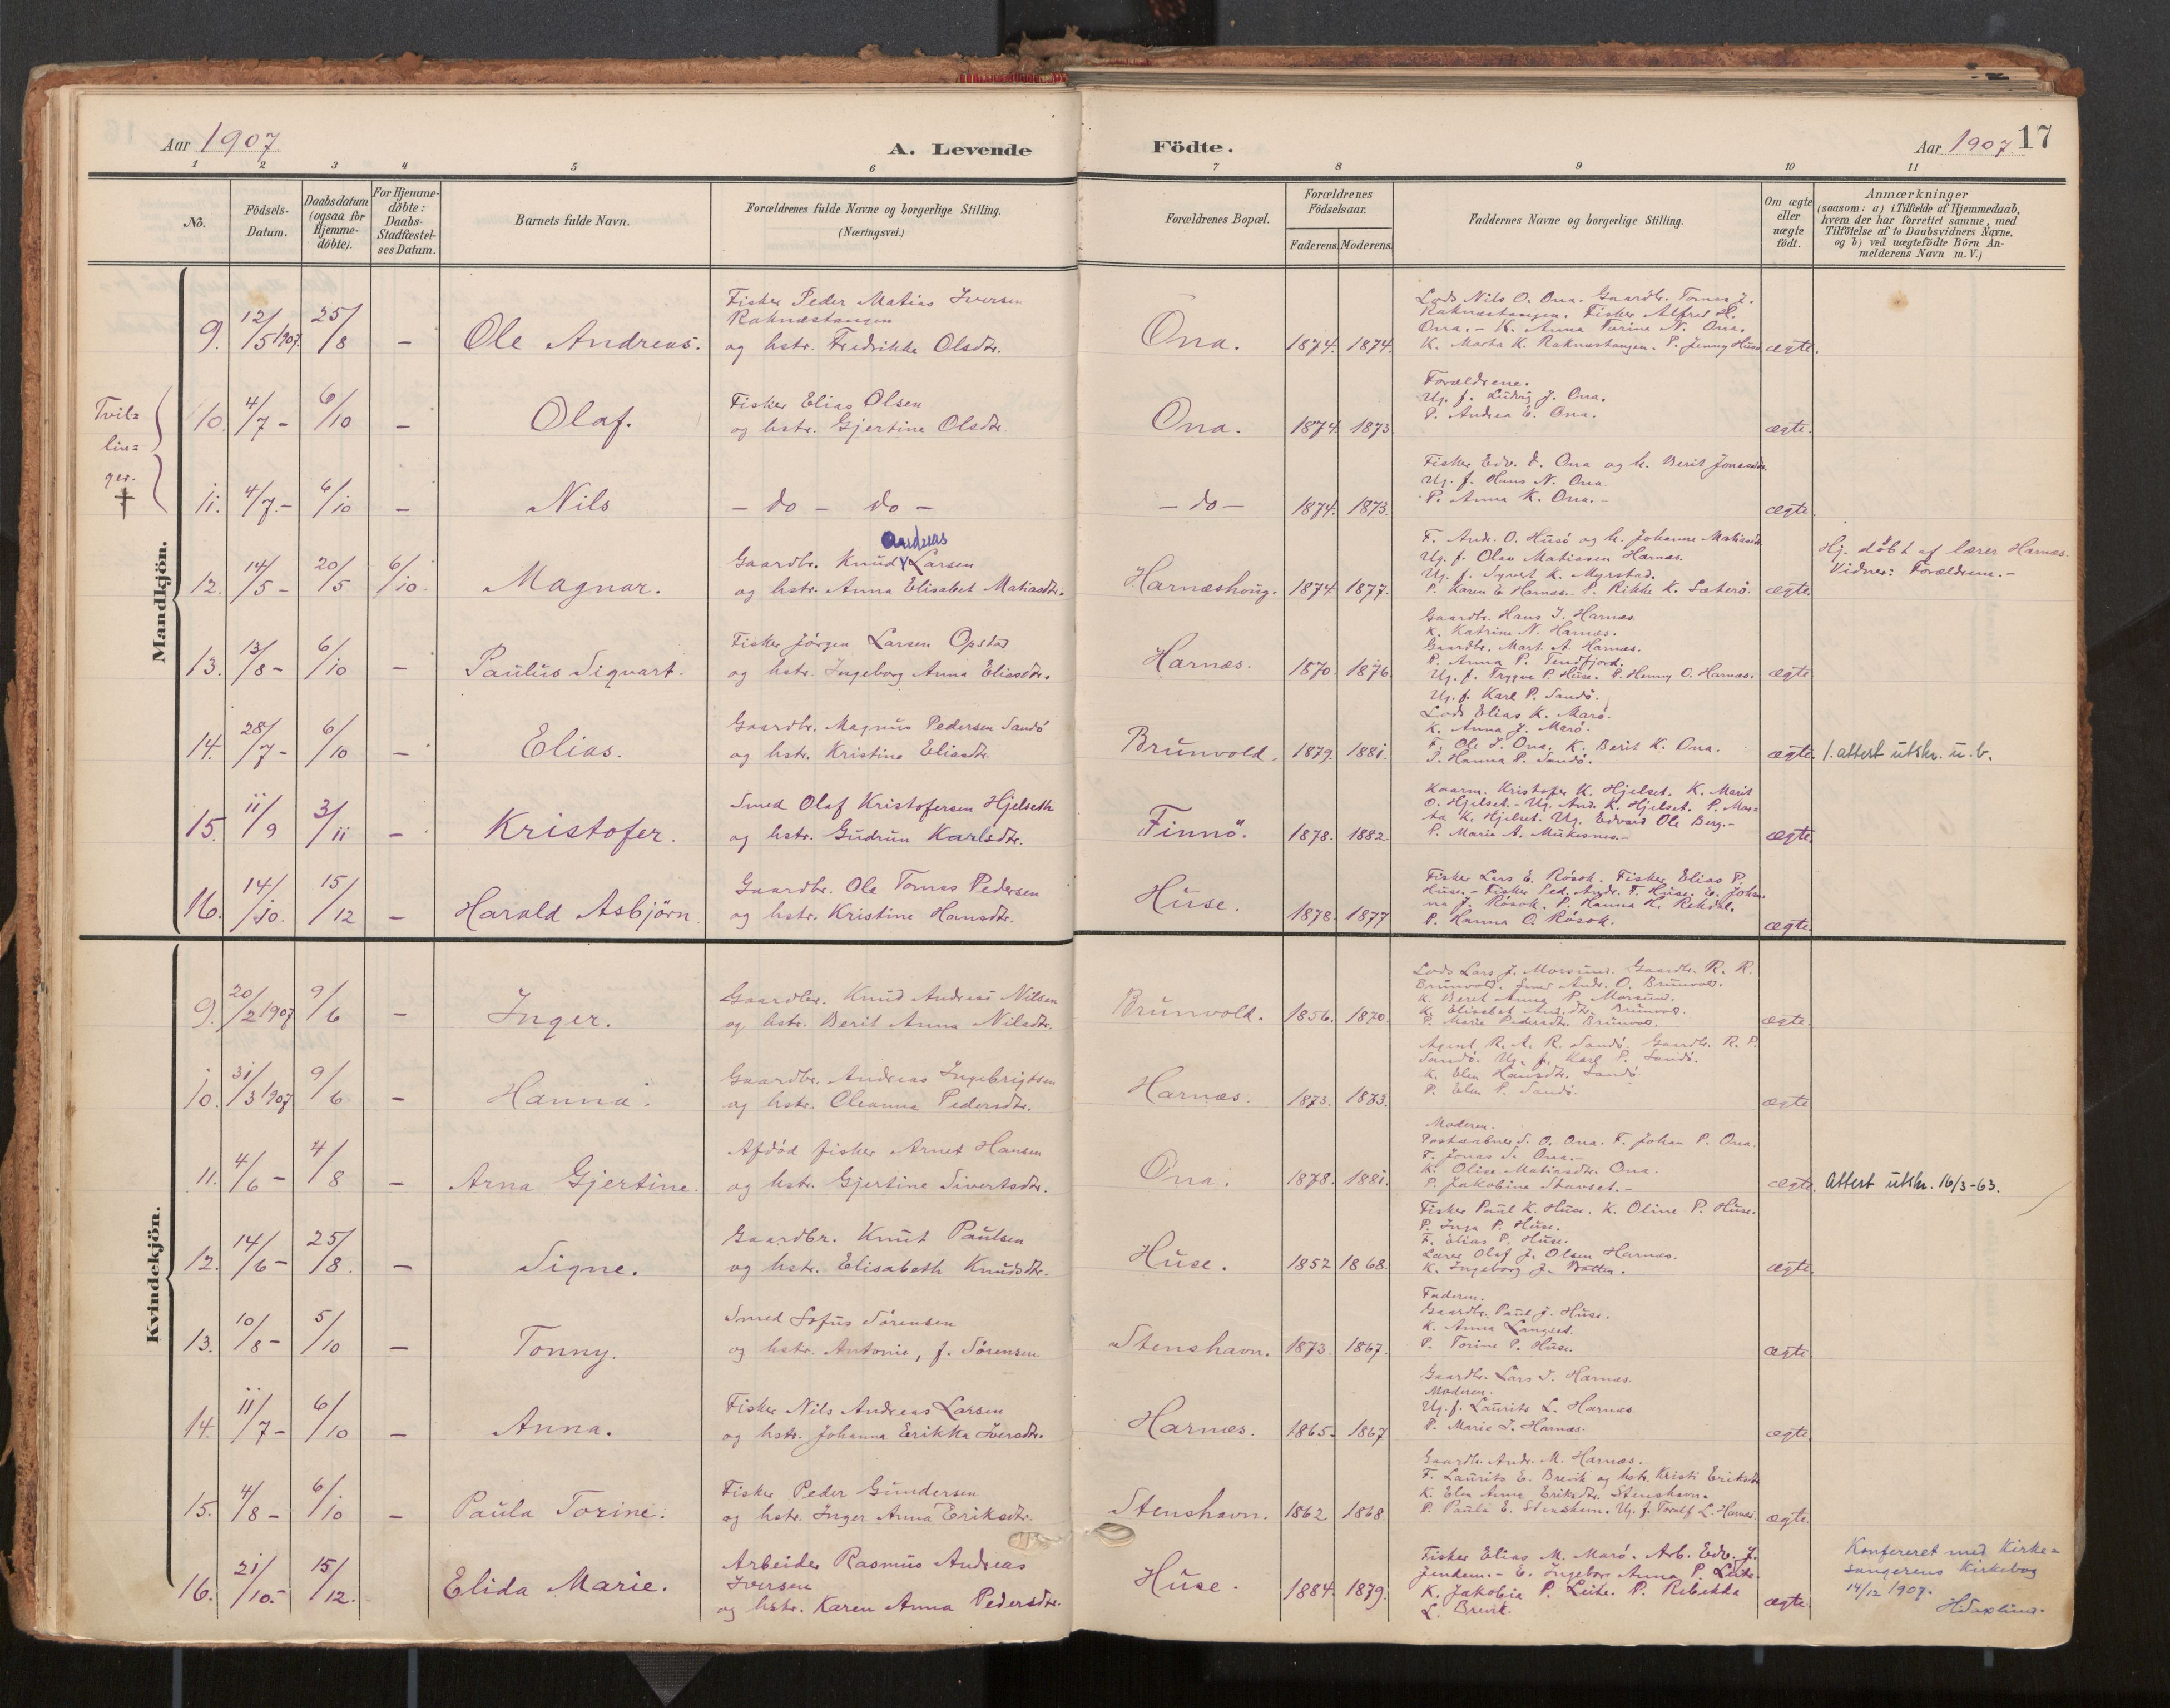 Aar 1907
A. Levende
Födte.
Aar 1907. 17
1 2 3 4 5 6 7 8 9 10 11
No.
Födsels-
Datum.
Daabsdatum
(ogsaa for
Hjemme-
döbte).
For Hjemme-
döbte:
Daabs-
Stadfæstel-
ses Datum.
Barnets fulde Navn.
Forældrenes fulde Navne og borgerlige Stilling.
(Næringsvei.)
Forældrenes Bopæl.
Forældrenes
Födselsaar.
Faderens. Moderens.
Faddernes Navne og borgerlige Stilling.
Om ægte
eller
uægte
födt.
Anmærkninger
(saasom: a) i Tilfælde af Hjemmedaab,
hvem der har forrettet samme, med
Tilföielse af to Daabsvidners Navne,
og b) ved uægtefödte Börn An-
melderens Navn m. V.)
Mandkjön.
9. 12/5 1907. 25/8 – Ole Andreas.
Fisker Peder Matias Iversen
Raknæstangen
og hstr. Fredrikke Olsdtr.
Ona. 1874. 1874.
Lods Nils O. Ona. Gaardbr. Tomas J.
Raknæstangen. Fisker Alfred H.
Ona. – K. Anna Turine N. Ona.
K. Marta K. Raknæstangen. P. Jenny Huse
ægte.
Tvil=
lin=
ger.
10. 4/7 – 6/10 – Olaf.
Fisker Elias Olsen
og hstr. Gjertine Olsdtr.
Ona. 1874. 1873.
Forældrene.
Ug. f. Ludvig J. Ona.
P. Andrea E. Ona.
ægte.
†
11. 4/7. – 6/10 – Nils
– do – do –
– do – 1874. 1873.
Fisker Edv. E. Ona og h. Berit Jonasdtr.
Ug. f. Hans N. Ona.
P. Anna K. Ona. –
ægte.
12. 14/5 – 20/5 6/10. Magnar.
Andreas
Gaardbr. Knud Larsen
og hstr. Anna Elisabet Matiasdtr.
Harnæshoug. 1874. 1877.
F. Andr. O. Husö og h. Johanne Matiasdtr.
Ug. f. Olav Matiassen Harnæs.
Ug. f. Syvert K. Myrstad.
P. Karen E Harnæs. P. Rikke K. Sæterö.
ægte.
Hj. døbt af lærer Harnæs.
Vidner: Forældrene. –
13. 13/8 – 6/10 – Paulus Sigvart.
Fisker Jörgen Larsen Opstad
og hstr. Ingeborg Anna Eliasdtr.
Harnæs. 1870. 1876.
Gaardbr. Hans J. Harnæs.
K. Katrine N. Harnæs.
Gaardbr. Mart. A. Harnæs.
P. Anna P. Tendfjord.
Ug. f. Trygve P. Huse. P. Henny O. Harnæs.
Ug. f. Karl P. Sandö.
ægte
14. 28/7 – 6/10 – Elias.
Gaardbr. Magnus Pedersen Sandö
og hstr. Kristine Eliasdtr.
Brunvold. 1879. 1881.
Lods Elias K. Marö.
K. Anna J. Marö.
F. Ole J. Ona. K. Berit K. Ona.
P. Hanna P. Sandö.
ægte. 1. attest utskr. u. b.
15. 11/9 3/11 – Kristofer.
Smed Olaf Kristofersen Hjelseth
og hstr. Gudrun Karlsdtr.
Finnö. 1878. 1882.
Kaarm. Kristofer K. Hjelset. K. Marit
O. Hjelset. – Ug. And. K. Hjelset. P. Mar=
ta K. Hjelset. Ug. Edvard Ole Berg. –
P. Marie A. Mukesnes. –
ægte.
16. 14/10. 15/12 – Harald Asbjörn.
Gaardbr. Ole Tomas Pedersen
og hstr. Kristine Hansdtr.
Huse. 1878. 1877
Fisker Lars E. Rösok. Fisker Elias P.
Huse. – Fisker Ped. Andr. T. Huse. E. Johan
na J. Rösok. P. Hanna H. Rekdal.
P. Hanna O. Rösok.
ægte.
Kvindekjön.
9. 20/2 1907 9/6 – Inger.
Gaardbr. Knud Andreas Nilsen
og hstr. Berit Anna Nilsdtr.
Brunvold. 1856. 1870.
Lods Lars J. Morsund. Gaardbr. R. R.
Brunvold. Smed Andr. O. Brunvold.
K. Beret Anna P. Morsund.
K. Elisabet And.dtr. Brunvold.
P. Marie Pedersdtr. Brunvold.
ægte.
10. 31/3 1907 9/6 – Hanna.
Gaardbr. Andreas Ingebrigtsen
og hstr. Oleanna Pedersdtr.
Harnæs. 1873. 1873.
Agent R. A. R. Sandö. Gaardbr. R. P.
Sandö. Ug. f. Karl P. Sandö.
K. Elen Hansdtr. Sandö.
P. Elen P. Sandö.
ægte
11. 4/6 – 4/8 – Arna Gjertine.
Afdöd fisker Arnet Hansen
og hstr. Gjertine Sivertsdtr.
Ona. 1878. 1881.
Moderen.
Postaabner S. O. Ona. F. Johan P. Ona.
F. Jonas S. Ona. –
K. Olise Matiasdtr. Ona.
P. Jakobine Stavset. –
ægte. Attest utskr. 16/3-63.
12. 14/6 – 25/8. – Signe.
Gaardbr. Knut Paulsen
og hstr. Elisabeth Knudsdtr.
Huse. 1852 1868.
Fisker Paul K. Huse. K. Oline P. Huse.
P. Inga P. Huse.
F. Elias P. Huse.
Lærer Olaf J. Olsen Harnæs.
K. Ingeborg J. Batten.
ægte.
13. 10/8 – 5/10 – Tonny.
Smed Sofus Sörensen
og hstr. Antonie, f. Sörensen
Stenshavn. 1873. 1867.
Faderen.
Gaardbr. Paul J. Huse.
K. Anna Langset.
P. Torine P. Huse.
ægte
14. 11/7 – 6/10 – Anna.
Fisker Nils Andreas Larsen
og hstr. Johanna Erikka Iversdtr.
Harnæs. 1865. 1867
Gaardbr. Lars J. Harnæs.
Moderen.
Ug. f. Laurits L. Harnæs.
P. Marie J. Harnæs.
ægte.
15. 4/8 – 6/10 – Paula Torine.
Fisker Peder Gundersen
og hstr. Inger Anna Eriksdtr.
Stenshavn. 1862 1868
Gaardbr. Andr. M. Harnæs.
F. Laurits E. Brevik og hstr. Kristi Eriksdtr
K. Elen Anna Eriksdtr. Stenshavn.
P. Paula E. Stenshavn. Ug. f. Toralf L. Harnæs
ægte.
16. 21/10. – 15/12. Elida Marie.
Arbeider Rasmus Andreas
Iversen
og hstr. Karen Anna Pedersdtr.
Huse. 1884. 1879.
Fisker Elias M. Marö. Arb. Edv. J.
Jendem. – E. Ingebor Anna P. Leite.
K. Jakobia P. Leite. P. Rebekka
L. Brevik.
ægte.
Konfereret med Kirke=
sangerens Kirkebog
14/12 1907.